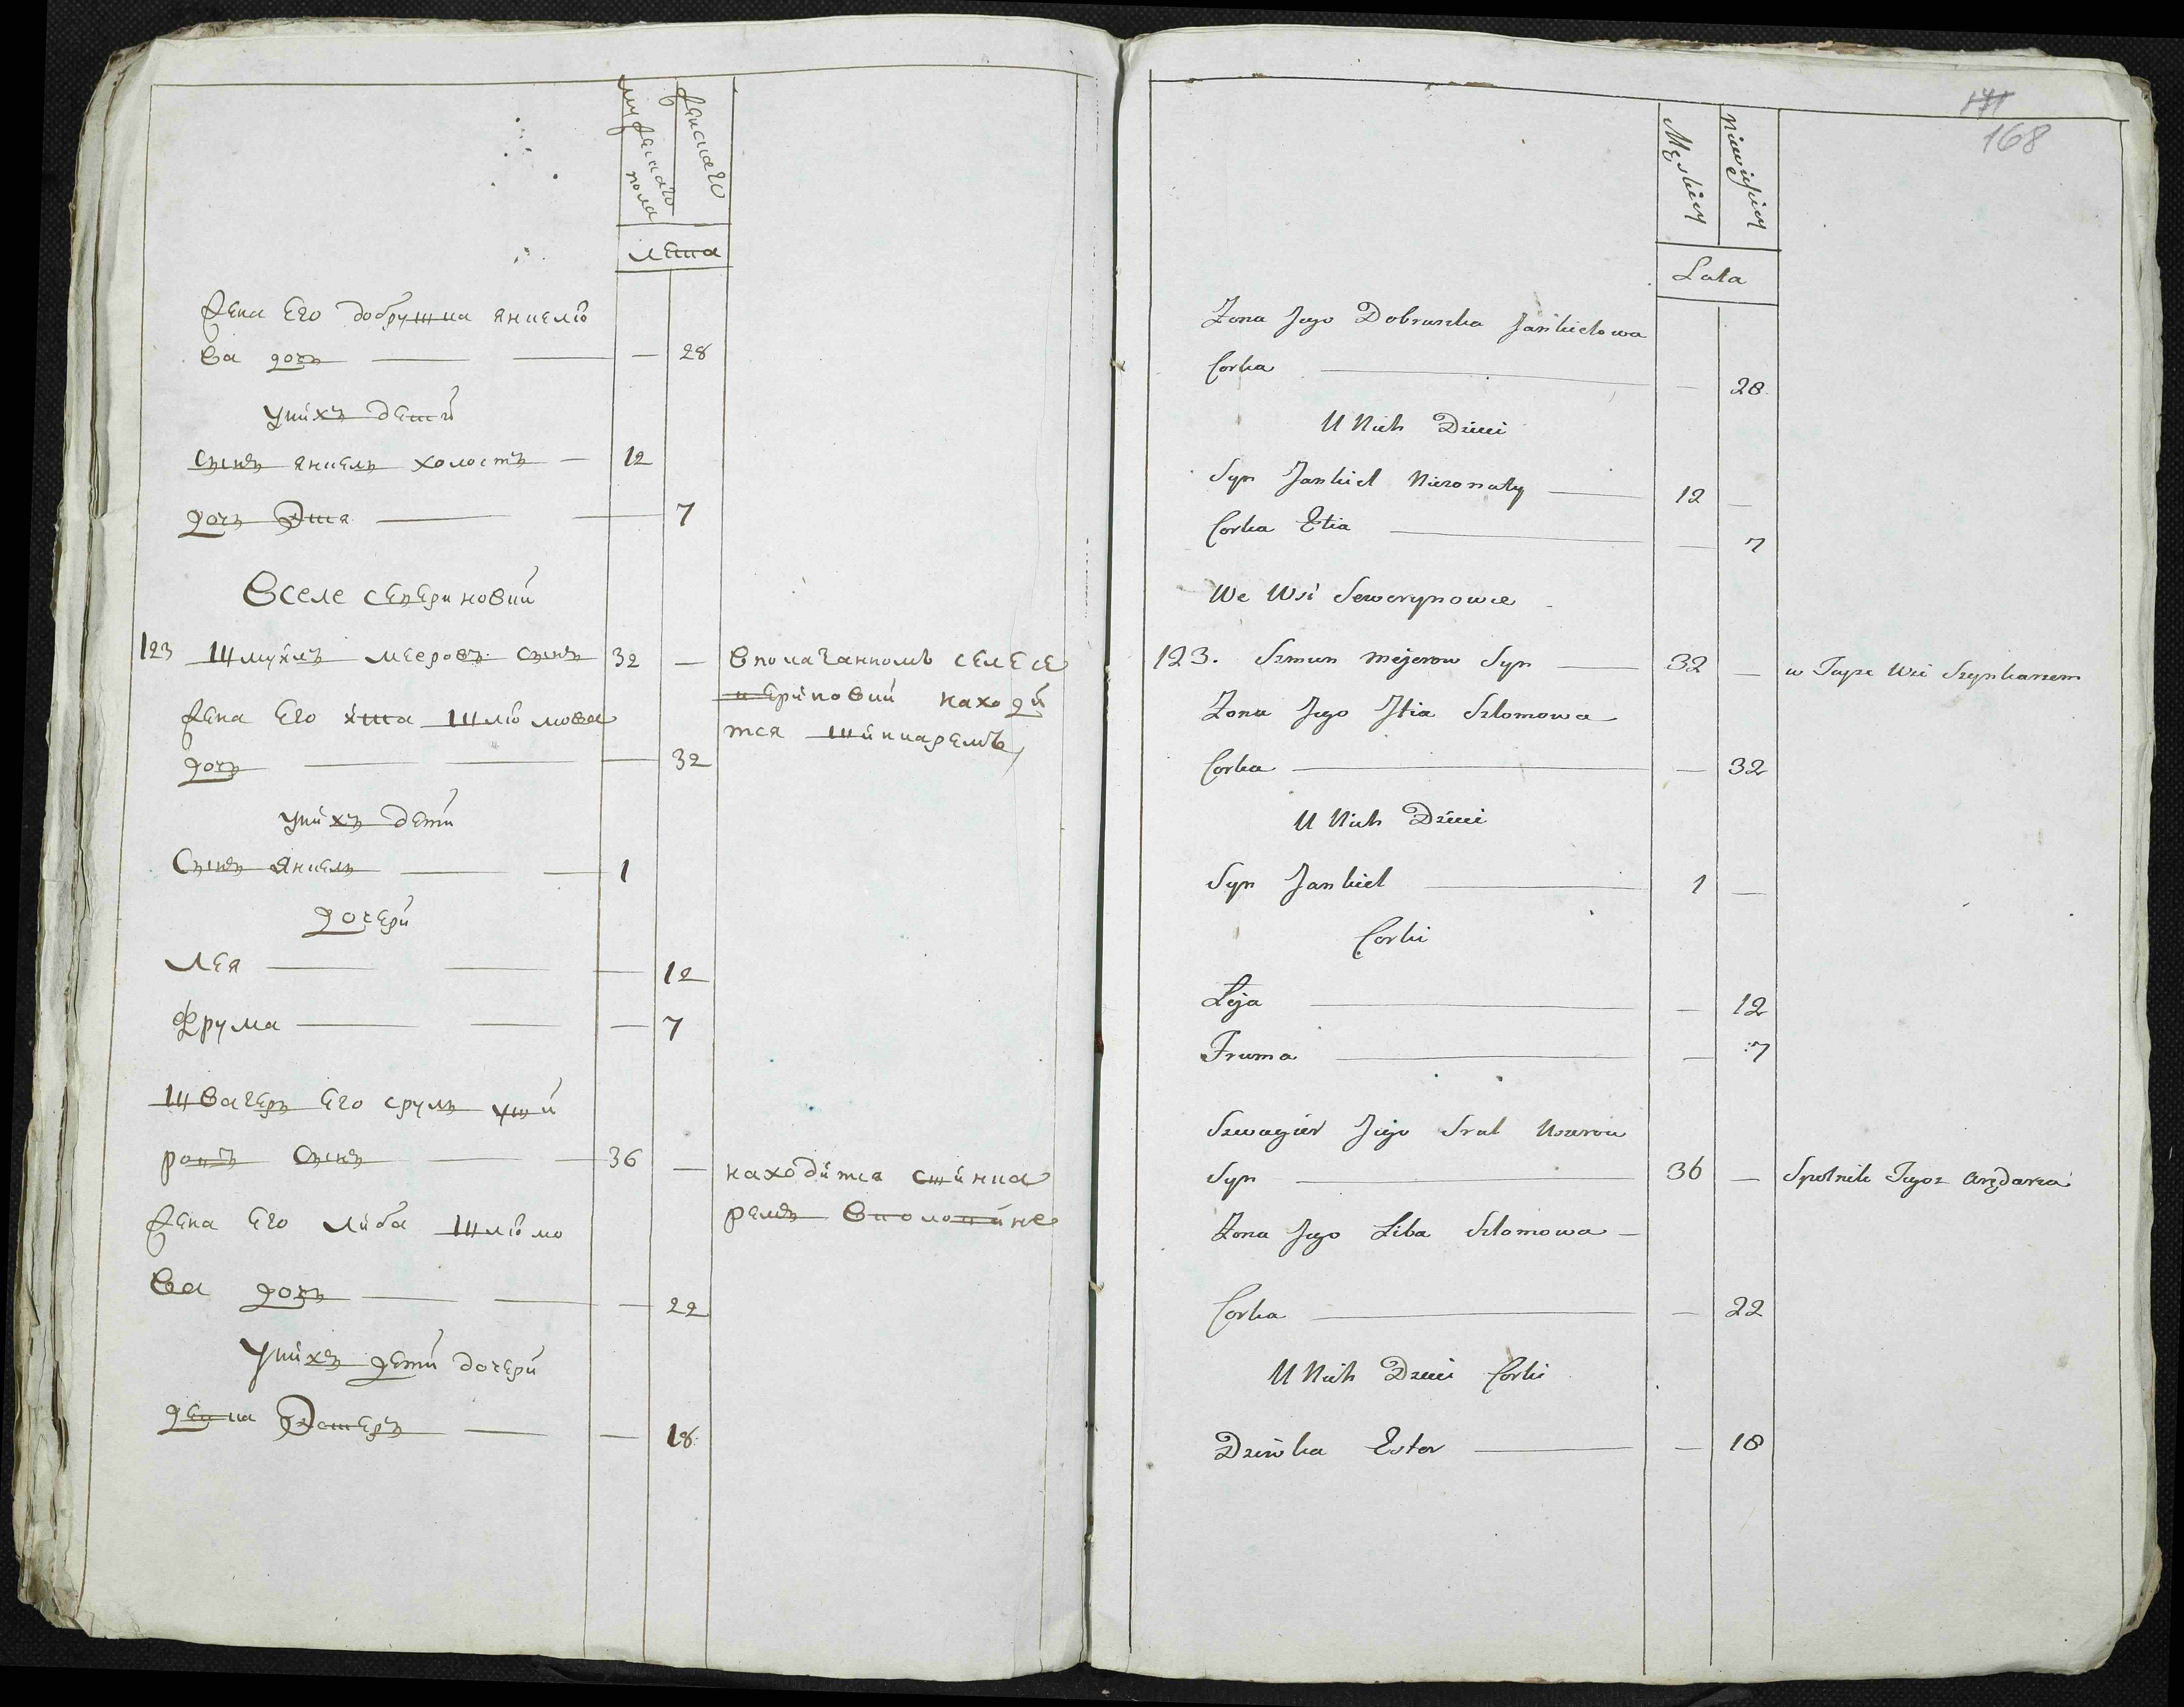 мужескаго пола
женскаго
лета
Жена его добрушка янкелю
ва дочъ — — — 28
унихъ дети
Сынъ янкель холостъ — 12
дочъ Этя — — 7
Вселе севериновки
123 Шмуилъ мееровъ сынъ 32 —
Впомаганномъ селе се
вериновки находи
тся шинкаремъ,
жена его итя шлiомова
дочъ — — — 32
унихъ дети
Сынъ янкель — — 1
дочери
Лея — — — 12
Фрума — — — 7
Швагеръ его сруль уши
ровъ сынъ — — 36 —
находится сшинка
ремъ вполовине
жена его либа шлiомо
ва дочъ — — — 22
Унихъ дети дочери
девка Эстеръ — — 18
171
168
Męskiey
Niewieskiey
Lata
Zona Jego Dobruszka Jankielowa
Corka — — 28
U Nich Dzieci
Syn Jankiel Niezonaty — 12 —
Corka Etia — — 7
We Wsi Sewerynowce
123. Szmun Mejerow Syn — 32 — w Teyze Wsi Szynkarzem
Zona Jego Itia Szlomowa
Corka — — 32
U Nich Dzieci
Syn Jankiel — 1 —
Corki
Leja — — 12
Fruma — — 7
Szwagier Jego Srul Uszerow
Syn — 36 — Spolnik Tegoz Arędarza
Zona Jego Liba Szlomowa —
Corka — — 22
U Nich Dzieci Corki
Dziewka Ester — — 18